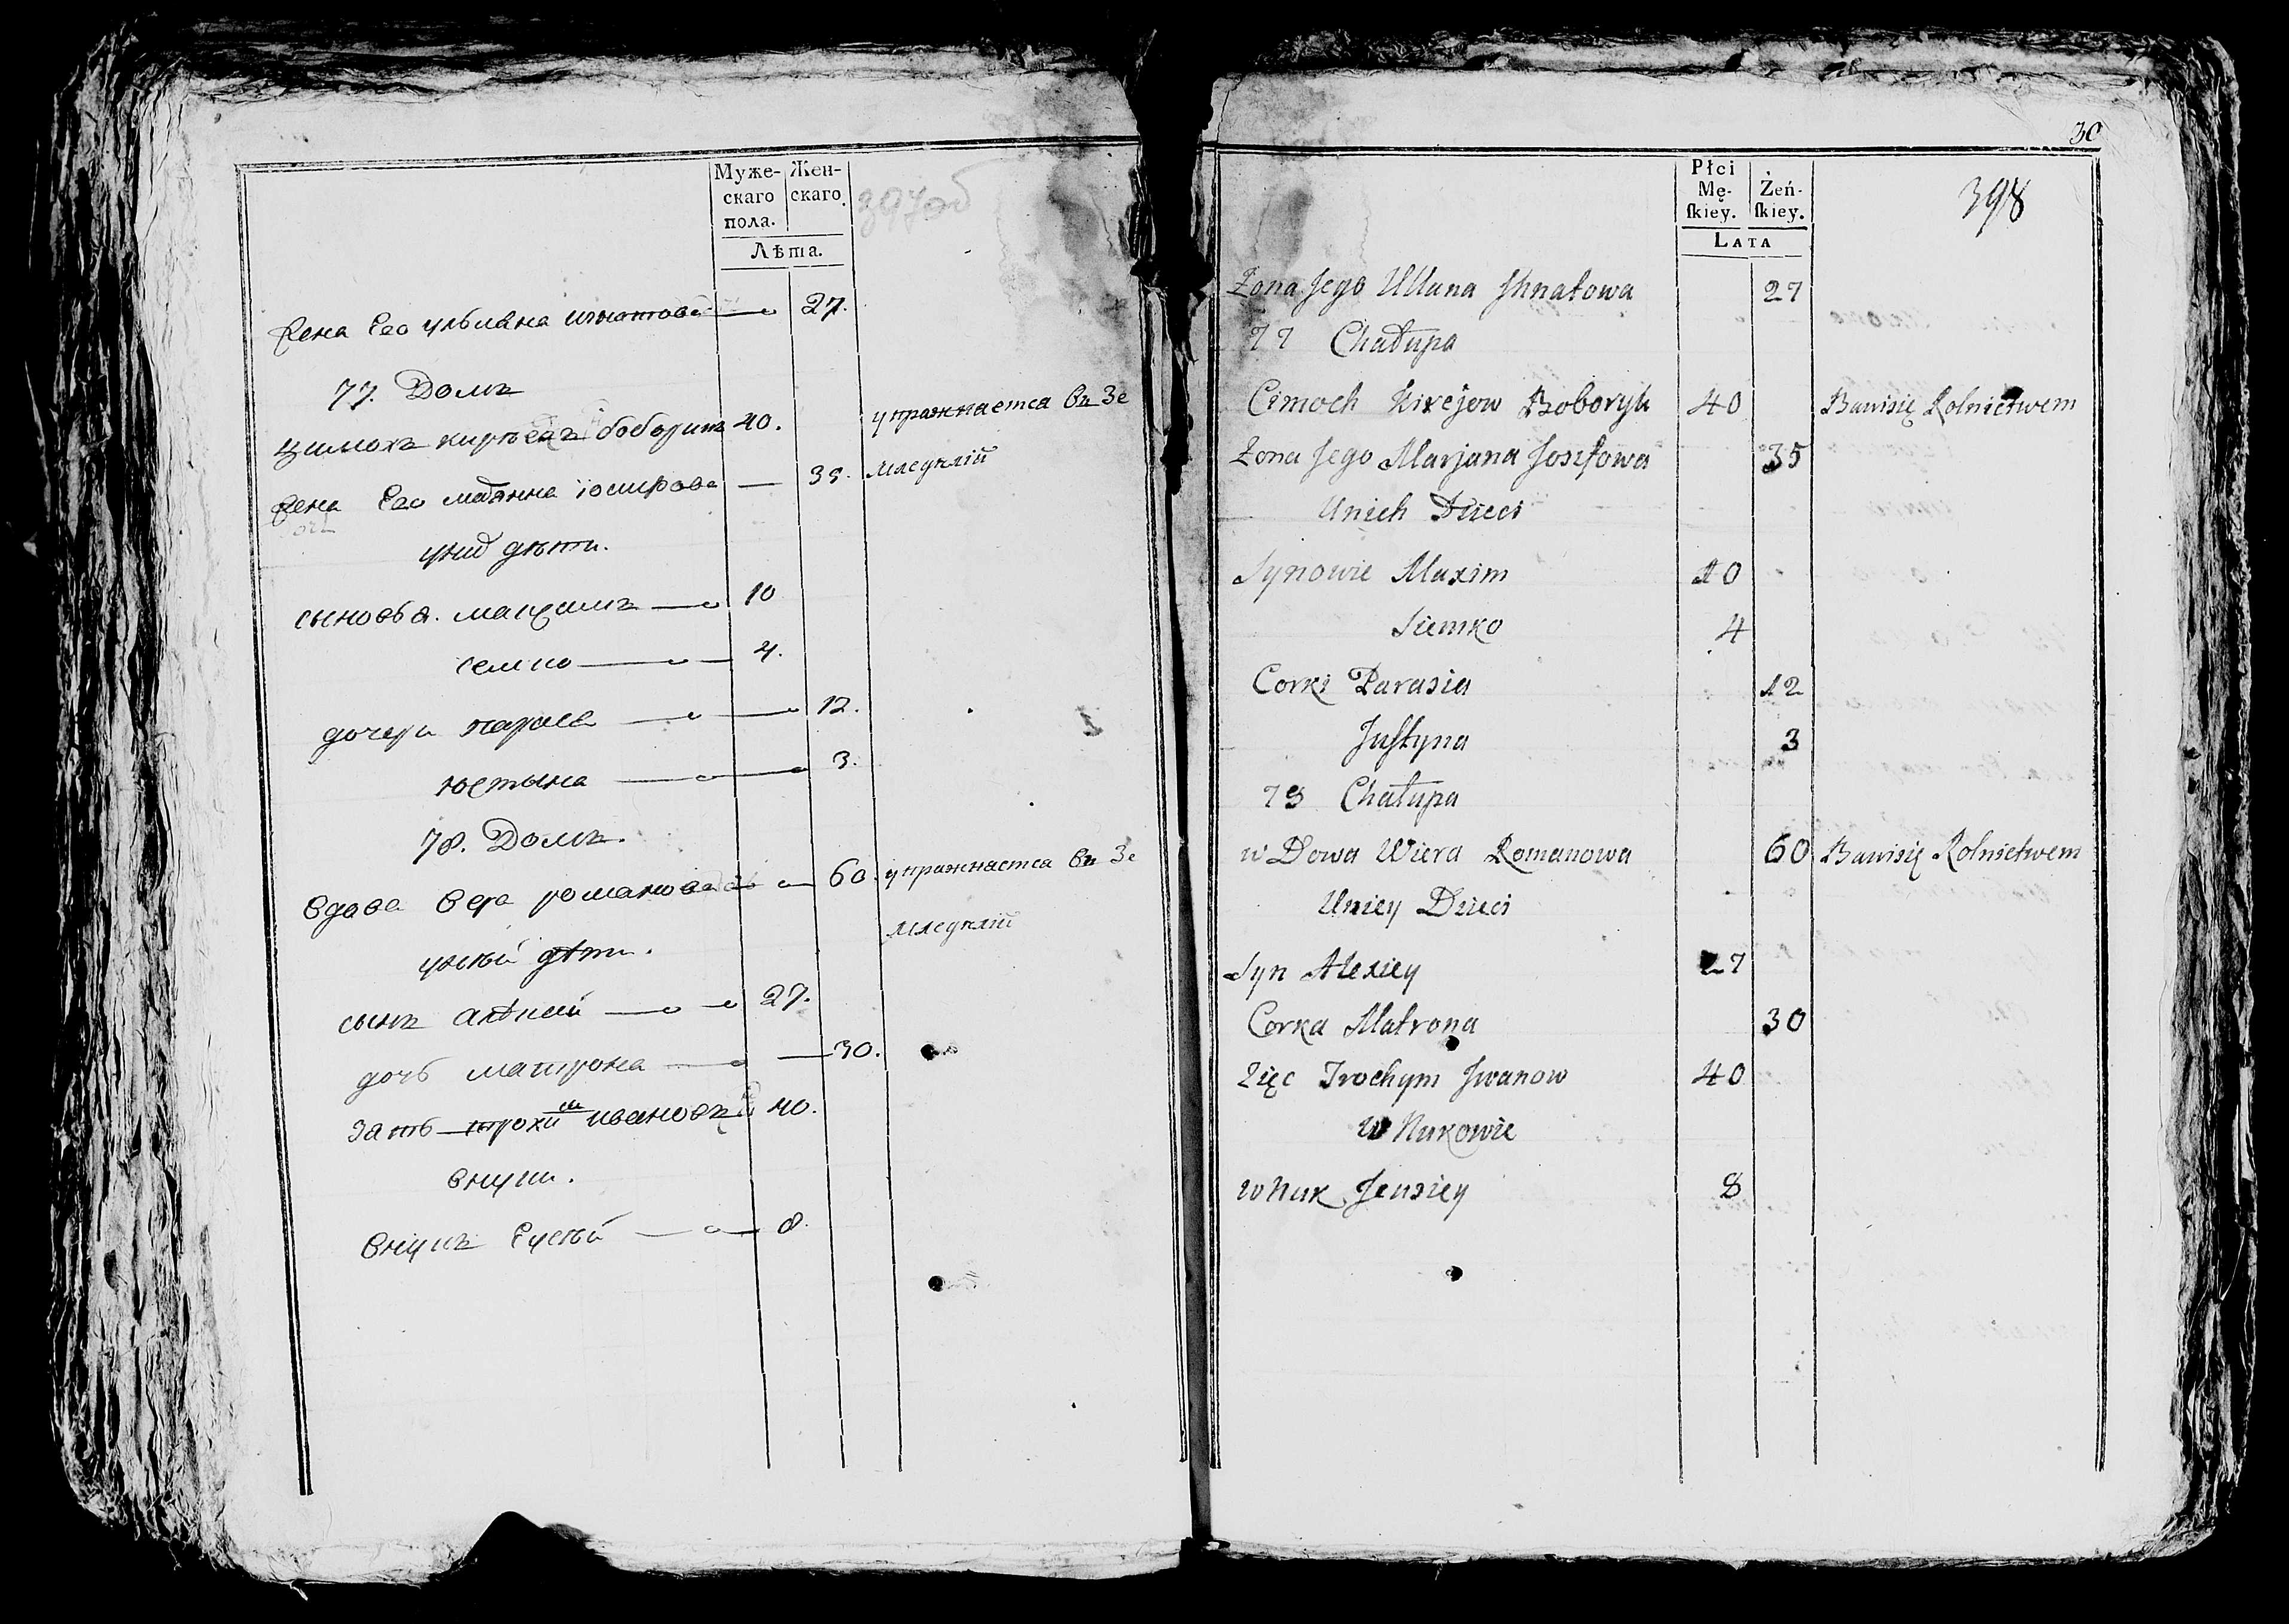 Муже-
скаго
пола.
Жен-
скаго.
Лѣта.
397об
жена Его ульяна игнатова 27.
77. Домъ
цимохъ кирѣевъ боборыкъ 40. упражняется въ Зе
жена Его марянна іосифова 35. мледѣлій
уних дѣти.
сыновья. максимъ 10
семко 4.
дочери парася 12.
юстына 3.
78. Домъ.
вдова вера романова 60. упражняется въ Зе
унѣй дѣти. мледѣлій
сынъ алѣксѣй 27.
дочь матрона 30.
зать трохим ивановъ 40.
внуки.
внукъ Еусѣй 8.
30
398
Płci
Mę-
ſkiey.
Żeń-
ſkiey.
LATA
Żona Jego Ullana Ihnatowa 27
77 Chałupa
Cimoch Kirejew Boboryk 40 Bawisię Rolnictwem
Żona Jego Marjana Jozefowa 35
Unich Dzieci
Synowie Maxim 10
Siemko 4
Corki Parasia 12
Juſtyna 3
78 Chałupa
wDowa Wiera Romanowa 60 Bawisię Rolnictwem
Uniey Dzieci
Syn Alexiey 27
Corka Matrona 30
Zięc Trochym Jwanow 40
wNukowie
wNuk Jeusiey 8